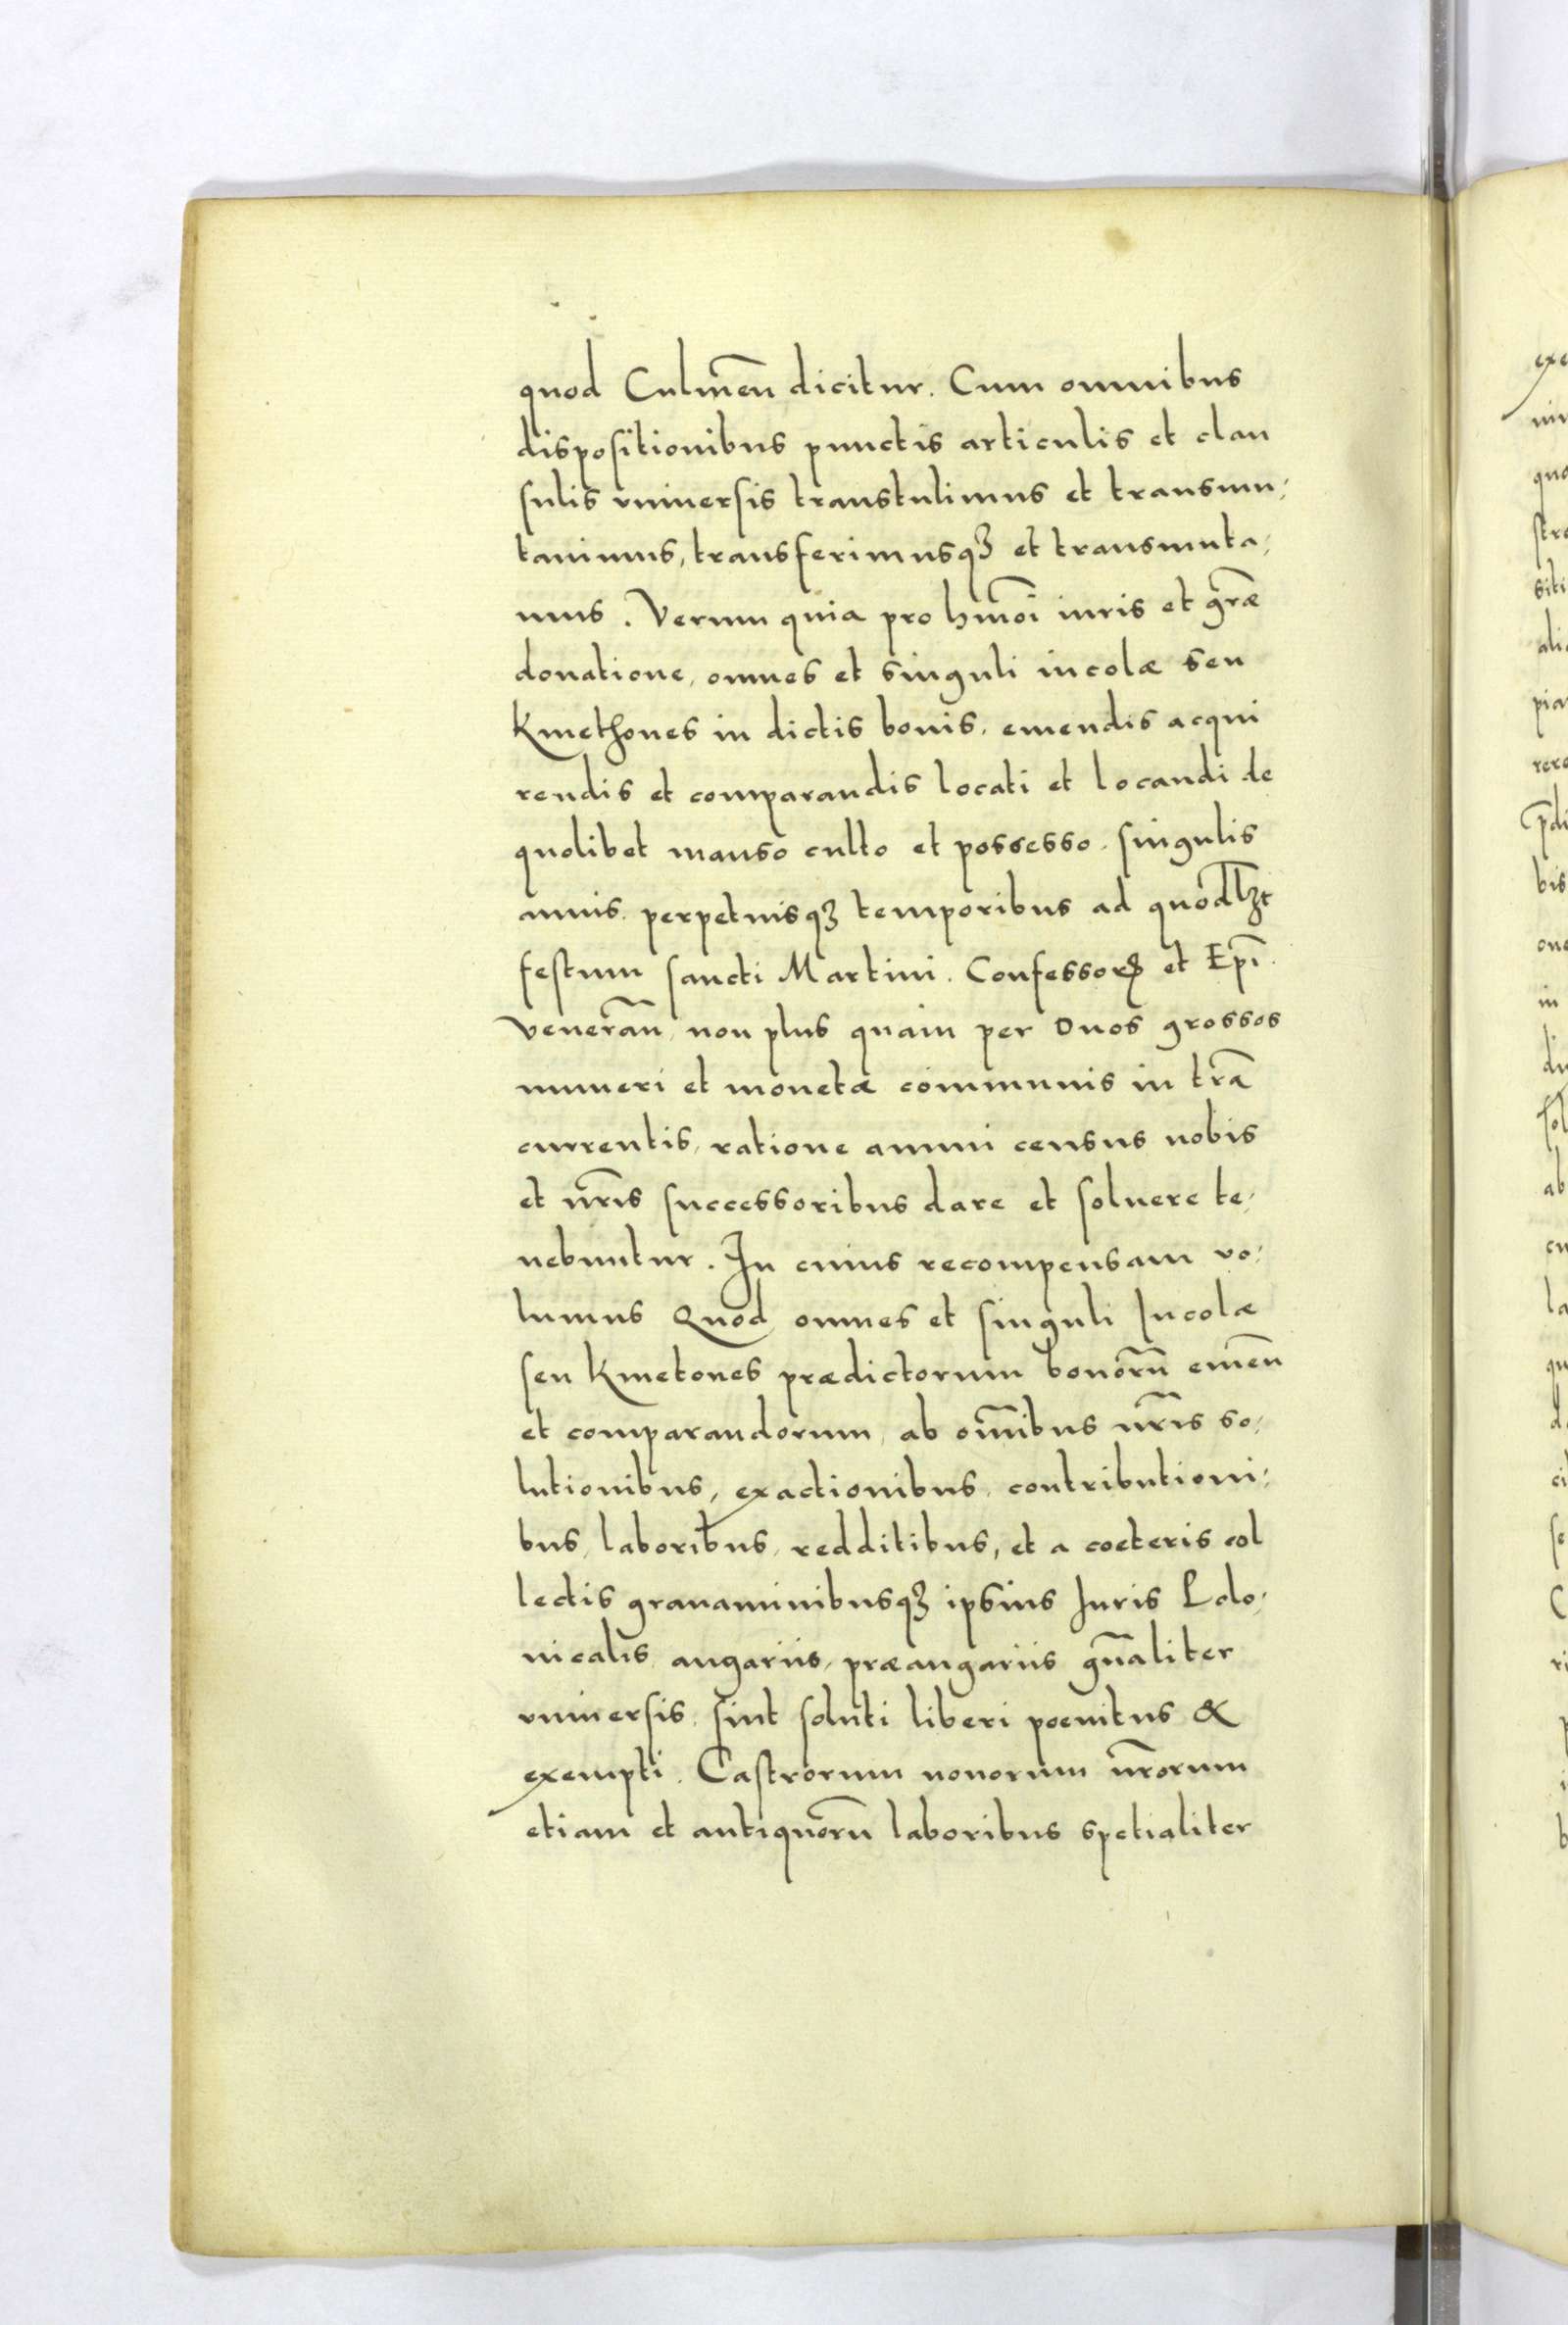 quod Culmeñ dicitur. Cum omnibus
dispositionibus punctis articulis et clau
sulis vniuersis transtulimus et transmu,
tauimus, transferimusqꝫ et transmuta,
mus. Verum quia pro hmōi iuris et grãe
donatione, omnes et singuli incolæ seu
Kmethones in dictis bonis, emendis acqui
rendis et comparandis locati et locandi de
quolibet manso culto et possesso, singulis
annis perpetuisqꝫ temporibus ad quodlꝫt
festum sancti Martini. Confessorꝭ et Epĩ.
Venerañ, non plus quam per duos grossos
numeri et monetæ communis in trã
currentis, ratione annui census nobis
et nr̃is successoribus dare et soluere te,
nebuntur. In cuius recompensam vo,
lumus Quod omnes et singuli Incolæ
seu Kmetones prædictorum bonorũ emeñ
et comparandorum, ab om̃ibus nr̃is so,
lutionibus, exactionibus, contributioni,
bus, laboribus, redditibus, et a coeteris col
lectis grauaminibusqꝫ ipsius Iuris Polo,
nicalis angariis, præangariis gñaliter
vniuersis, sint soluti liberi poenitus &
exempti. Castrorum nouorum nr̃orum
etiam et antiquorũ laboribus spetialiter